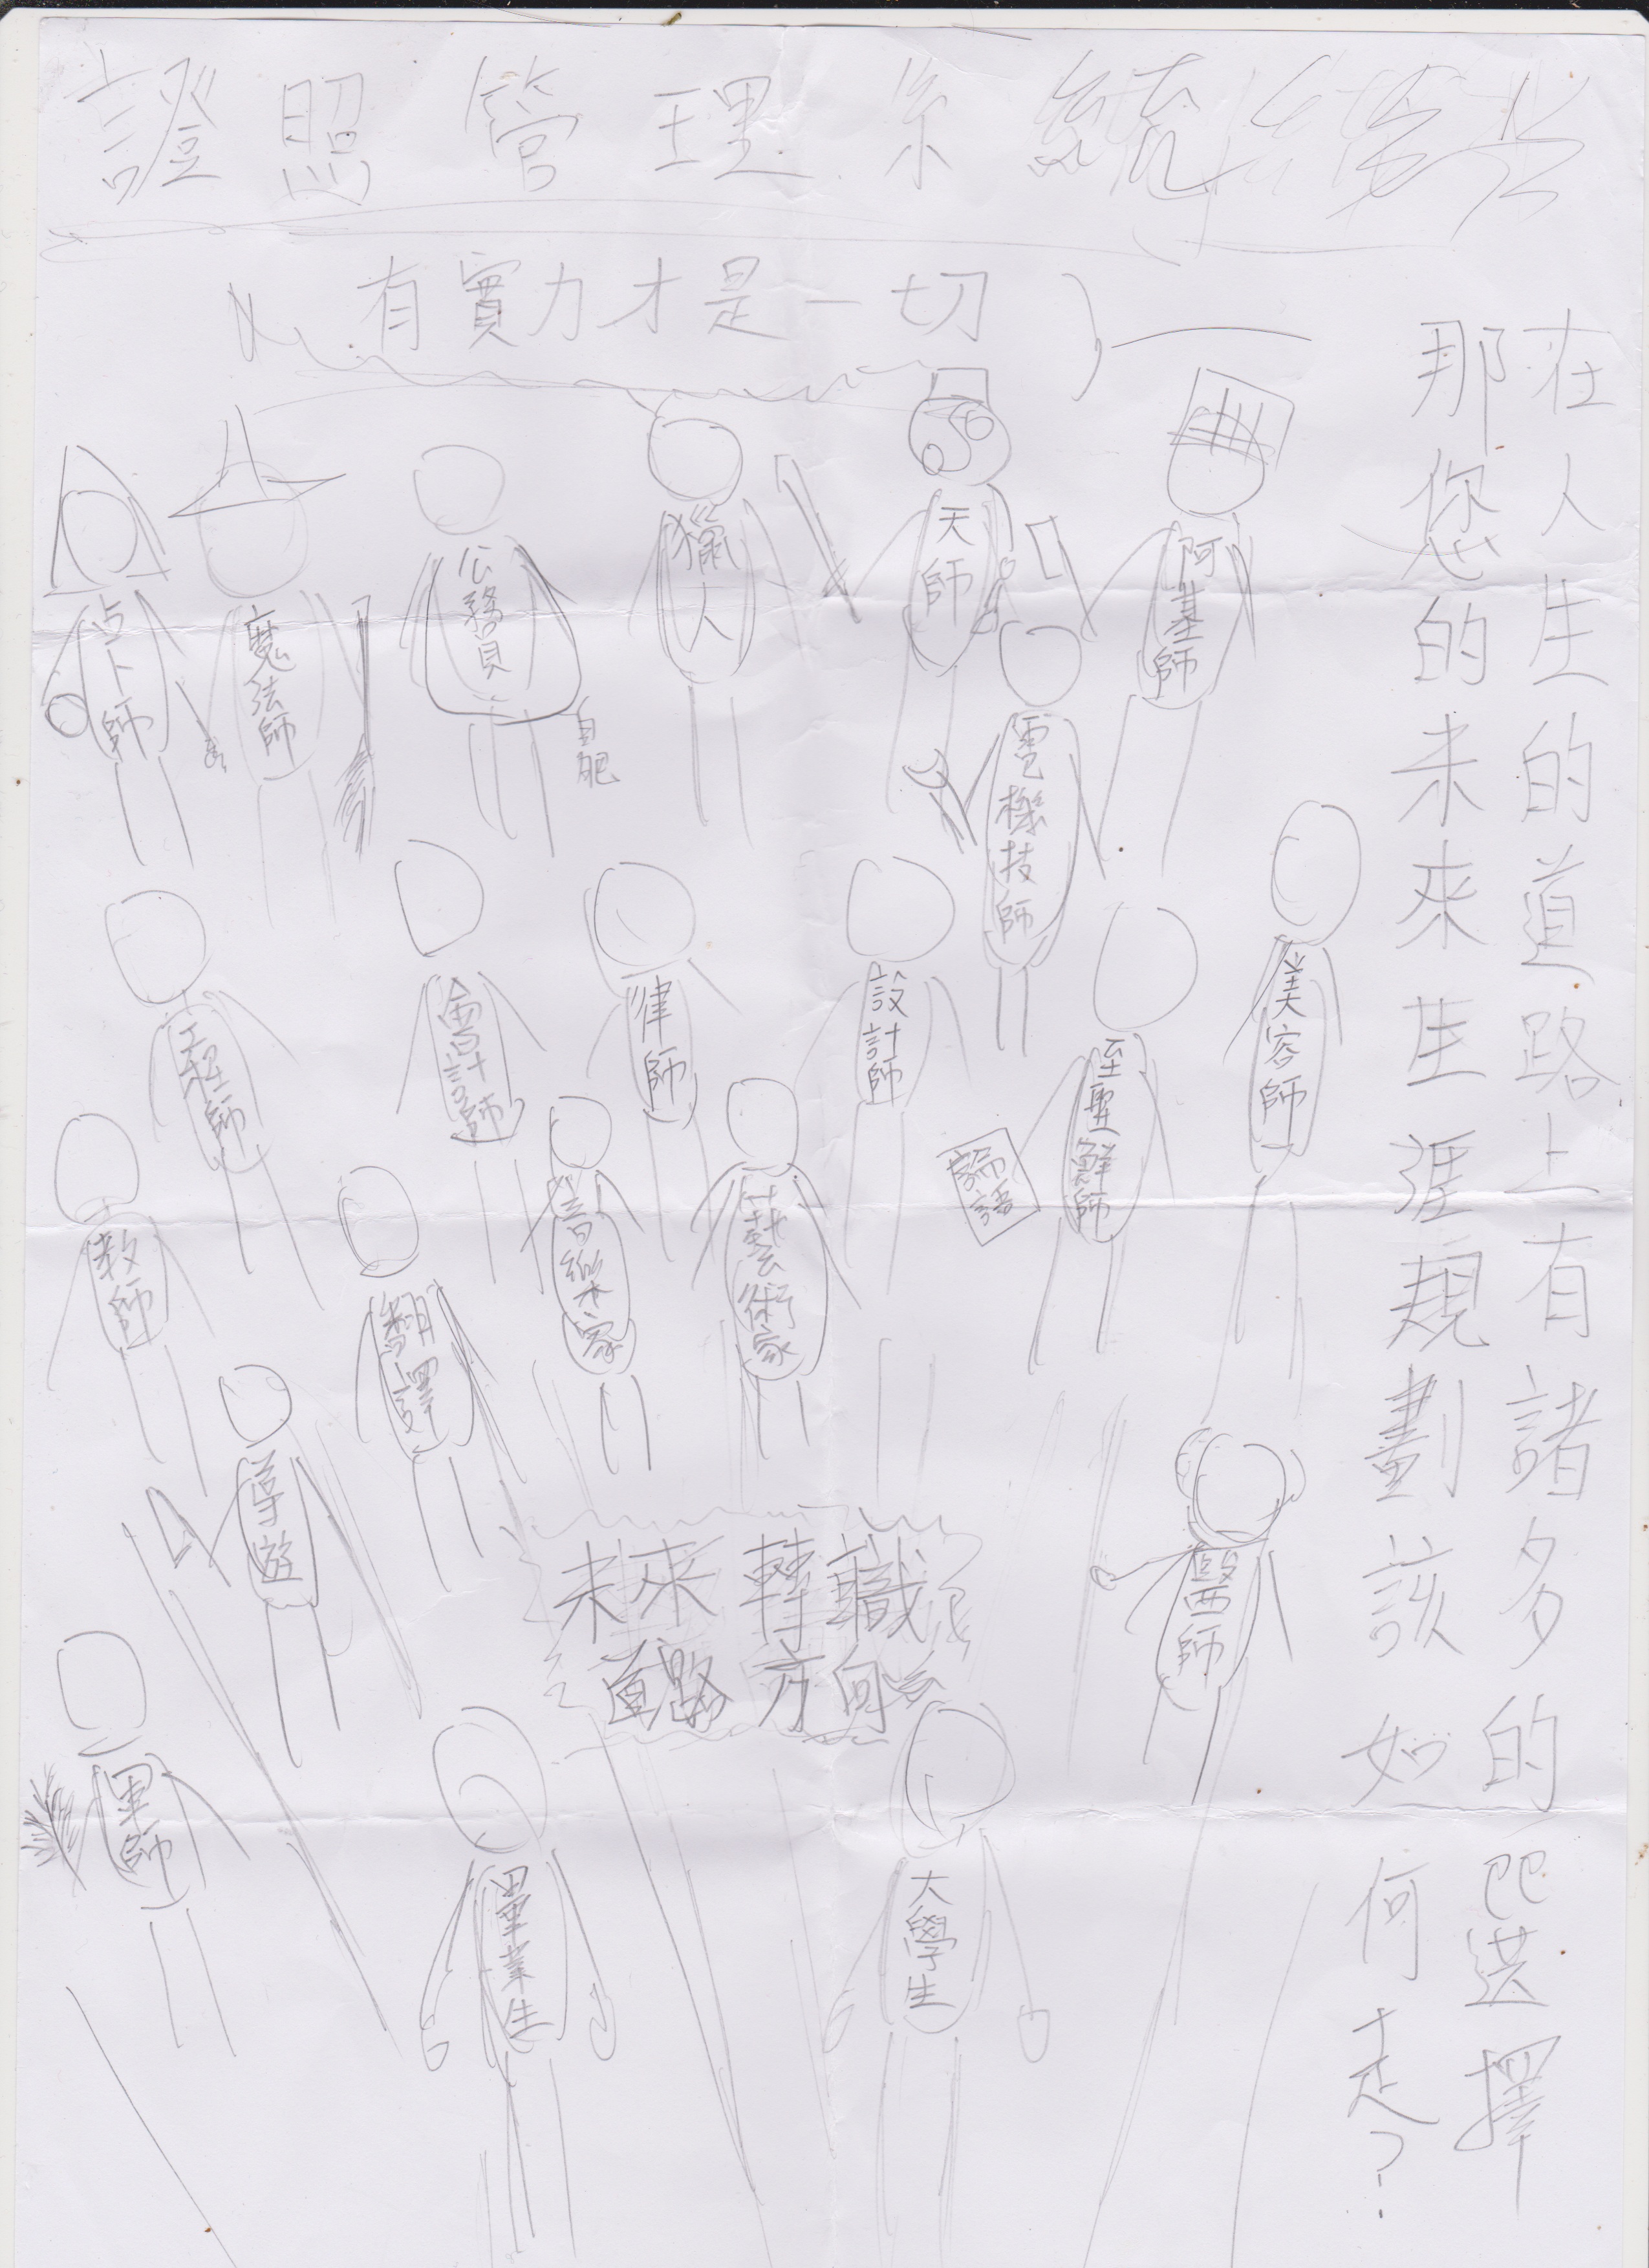 證照管理系統
有實力才是一切
在人生的道路上有諸多的選擇
那您的未來生涯規劃該如何走?
占卜師
魔法師
公務員
自肥
獵人
天師
阿基師
電機技師
工程師
會計師
律師
設計師
至聖鮮師
論語
美容師
教師
翻譯
音樂家
藝術家
導遊
未來轉職
道路方向
醫師
軍師
畢業生
大學生